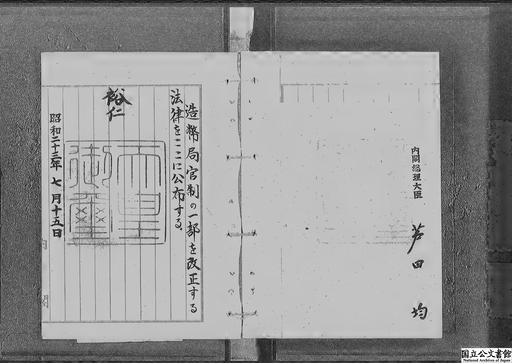 内閣総理大臣
芦田均
造幣局官制の一部を改正する
法律をここに公布する。
裕仁
天皇
御璽
昭和二十三年七月十五日
国立公文書館
National Archives of Japan